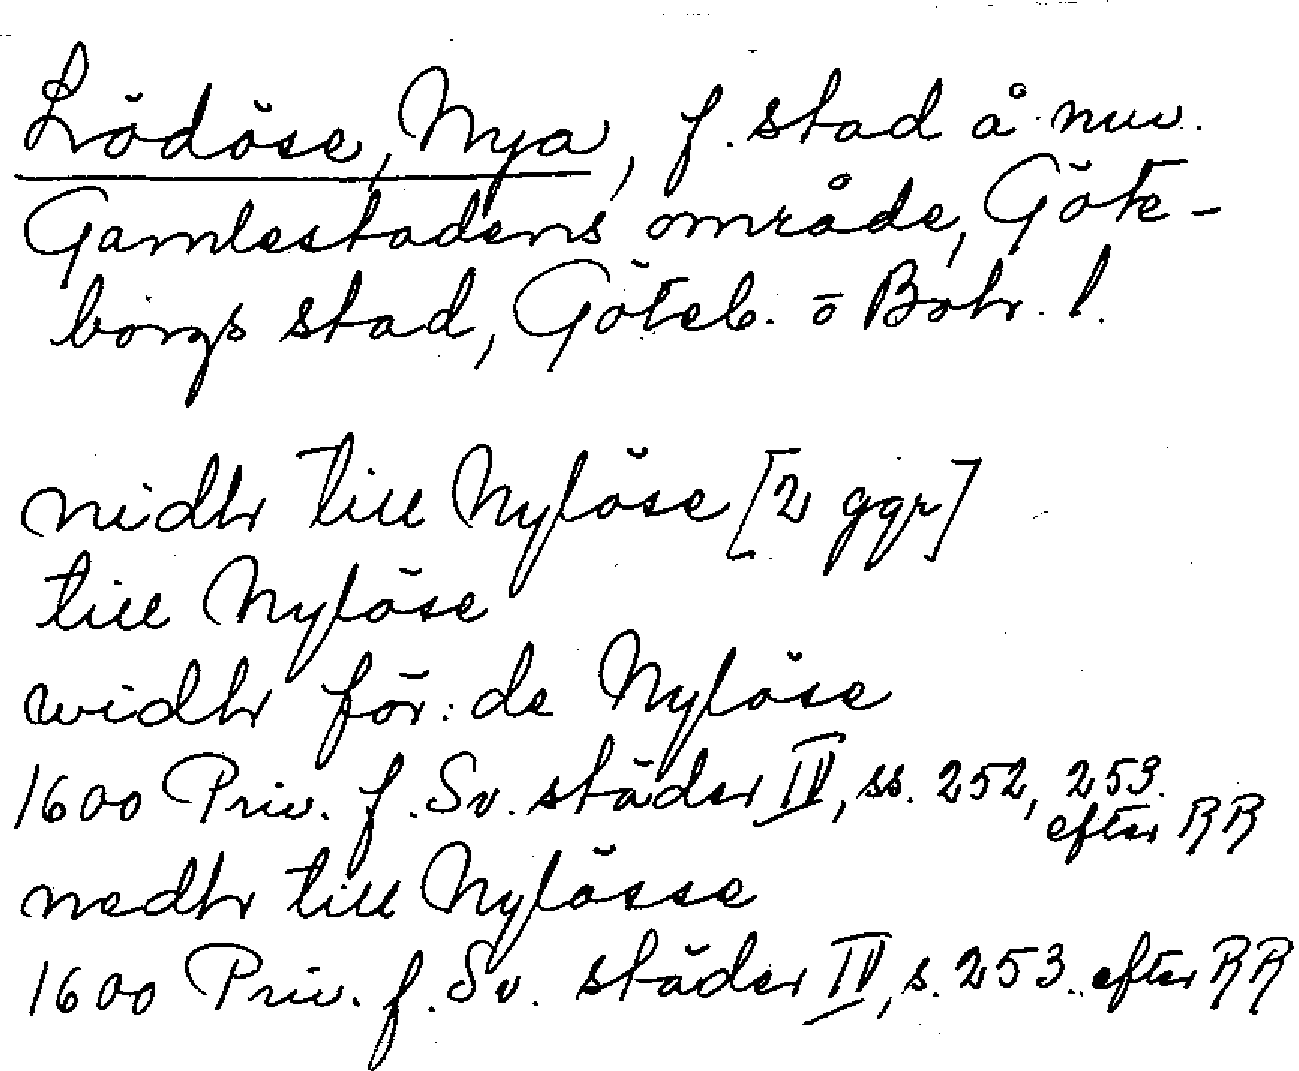 Lödöse, Nya, f. stad å nuv.
Gamlestadens område, Göte-
borgs stad, Göteb. o Boh. l.
nidhr till Nylöse [2 ggr]
till Nylöse
widhr för: de Nylöse
1600 Priv. f. Sv. städer IV, ss. 252, 253.
efter RR
nedhr till Nylösse
1600 Priv. f. Sv. städer IV, s. 253. efter RR